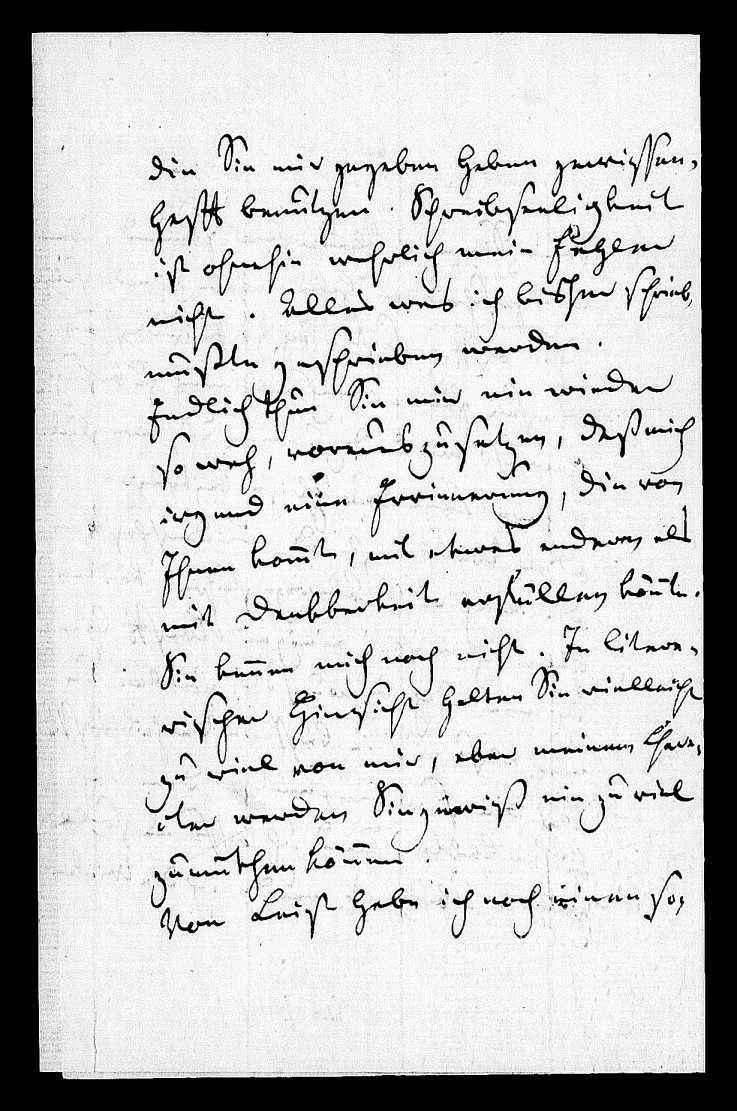 die Sie mir gegeben haben gewissen-
haft benützen. Schreibseeligkeit
ist ohnehin wahrlich mein Fehler
nicht. Alles was ich bisher schrieb,
mußte geschrieben werden.
Endlich thun Sie mir nie wieder
so weh, vorauszusetzen, daß mich
irgend eine Errinnerung, die von
Ihnen kom̅t, mit etwas anderem als
mit Dankbarkeit erfüllen kön̅te.
Sie kennen mich noch nicht. In litera-
rischer Hinsicht halten Sie vielleicht
zu viel von mir, aber meinem Chara-
cter werden Sie gewiß nie zu viel
zumuthen kön̅en.
Von Leist habe ich noch keinen so-